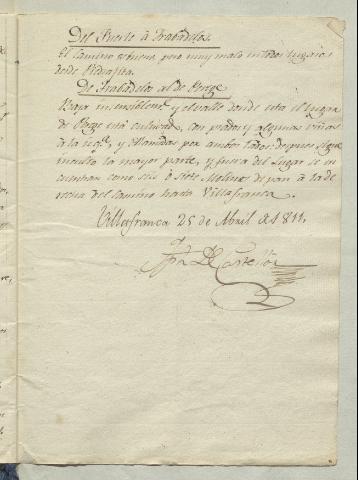 Del Puerto à Trabadelos.
El camino es bueno pero muy malo en todos lugares
desde Piedrafita.
De Trabadelos al de Perege
Baja insensiblem.te y el valle donde está el lugar
de Perege está cultivado, con prados y algunas viñas
à la izq.da, y Montañas por ambos lados: despues sigue
inculto la mayor parte, y fuera del Lugar se en
cuentran como seis ó siete Molinos de pan à la de
recha del camino hasta Villafranca.
Villafranca 25 de Abril de 1811.